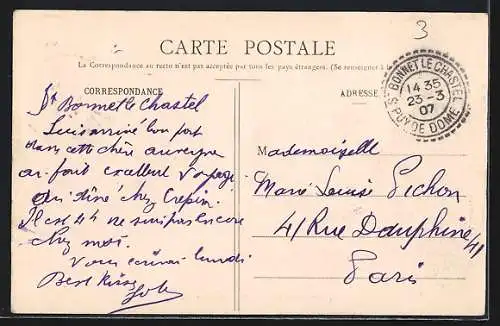 3
CARTE POSTALE
La Correspondance au recto n'est pas acceptée par tous les pays étrangers. (Se renseigner à
CORRESPONDANCE
ADRESSE
ST BONNET LE CHASTEL
14 35
23 - 3
07
PUY DE DOME
St Bonnet le Chastel
Suis arrivé bon port
dans cette chère auvergne
ai fait excellent voyage
ai dîné chez Crepin
Il est 4h ne suis pas encore
chez moi.
Vous écrirai lundi
Best Kisses
Mademoiselle
Marie Louise Pichon
41 Rue Dauphine 41
Paris